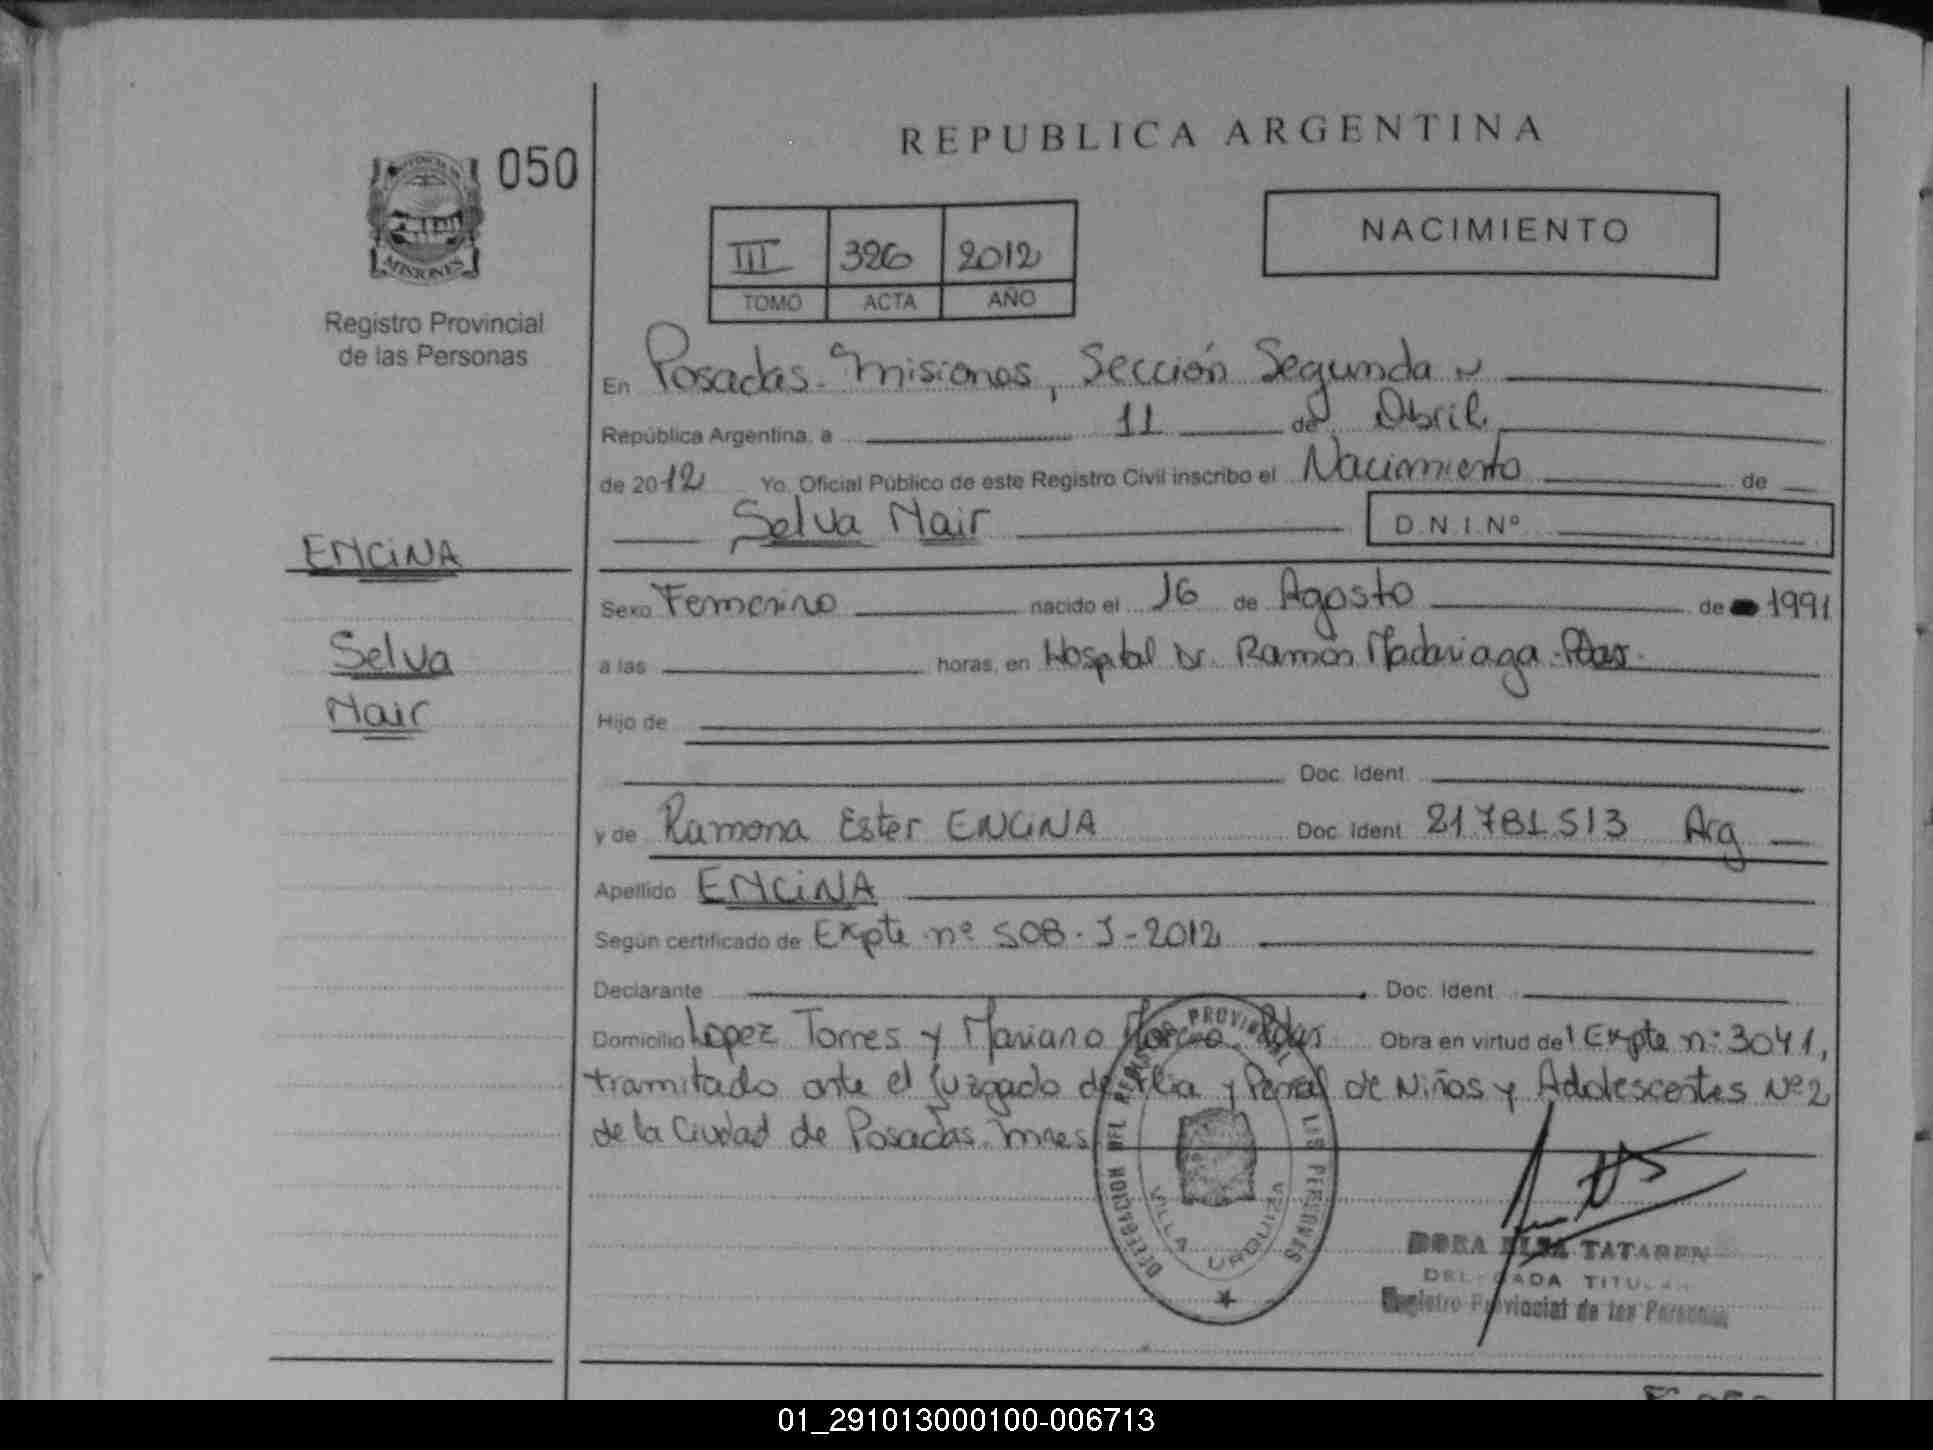 REPUBLICA ARGENTINA
050
NACIMIENTO
III 326 2012
TOMO ACTA AÑO
MISIONES
Registro Provincial
de las Personas
En Posadas - Misiones, Sección Segunda
República Argentina, a 11 de Abril
de 2012 Yo, Oficial Público de este Registro Civil inscribo el Nacimiento de
Selva Nair D.N.I.Nº
ENCINA
Sexo Femenino nacido el 16 de Agosto de 1991
Selva
a las horas, en Hospital Dr. Ramón Madariaga - Pdas.
Nair
Hijo de
Doc. Ident.
y de Ramona Ester ENCINA Doc. Ident. 21.781.513 Arg
Apellido ENCINA
Según certificado de Expte nº 508-J-2012
Declarante Doc. Ident.
Domicilio Lopez Torres y Mariano Moreno - Pdas Obra en virtud del Expte nº 3041,
tramitado ante el Juzgado de Flia y Penal de Niños y Adolescentes Nº 2
de la Ciudad de Posadas - Mnes
DELEGACION DEL REGISTRO PROVINCIAL LAS PERSONAS
VILLA URQUIZA
DORA ELSA TATAREN
DELEGADA TITULAR
Registro Provincial de las Personas
01_291013000100-006713